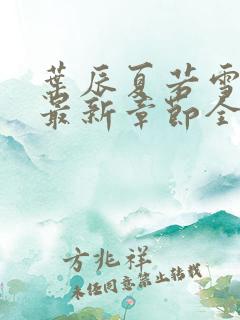 叶辰夏若雪
最新章节全
方兆祥
未经同意禁止转载